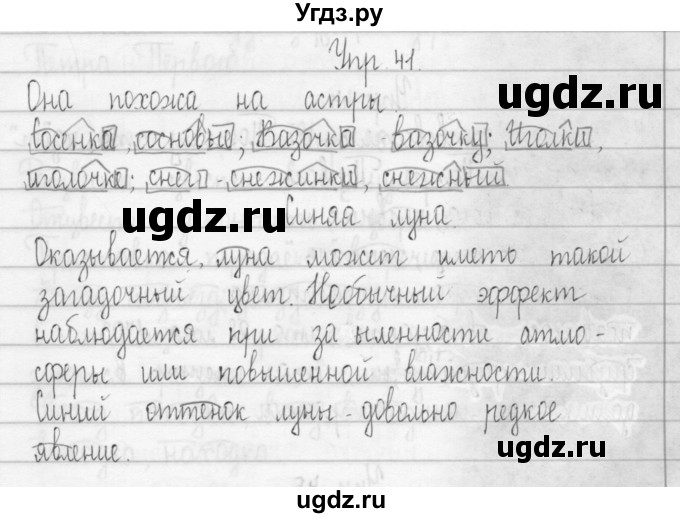 Угдз.ру
Упр. 41.
Она похожа на астры
ugdz.ru
Сосенка, сосновые; Вазочка вазочку; Иголки,
иголочка; снег - снежинки, снежный
ugdz.ru
Синяя луна.
Оказывается, луна может иметь такой
загадочный цвет. Необычный эффект
наблюдается при за ыленности атмо-
сферы или повышенной влажности.
Синий оттенок луны - довольно редкое
явление.
ugdz.ru
ugdz.ru